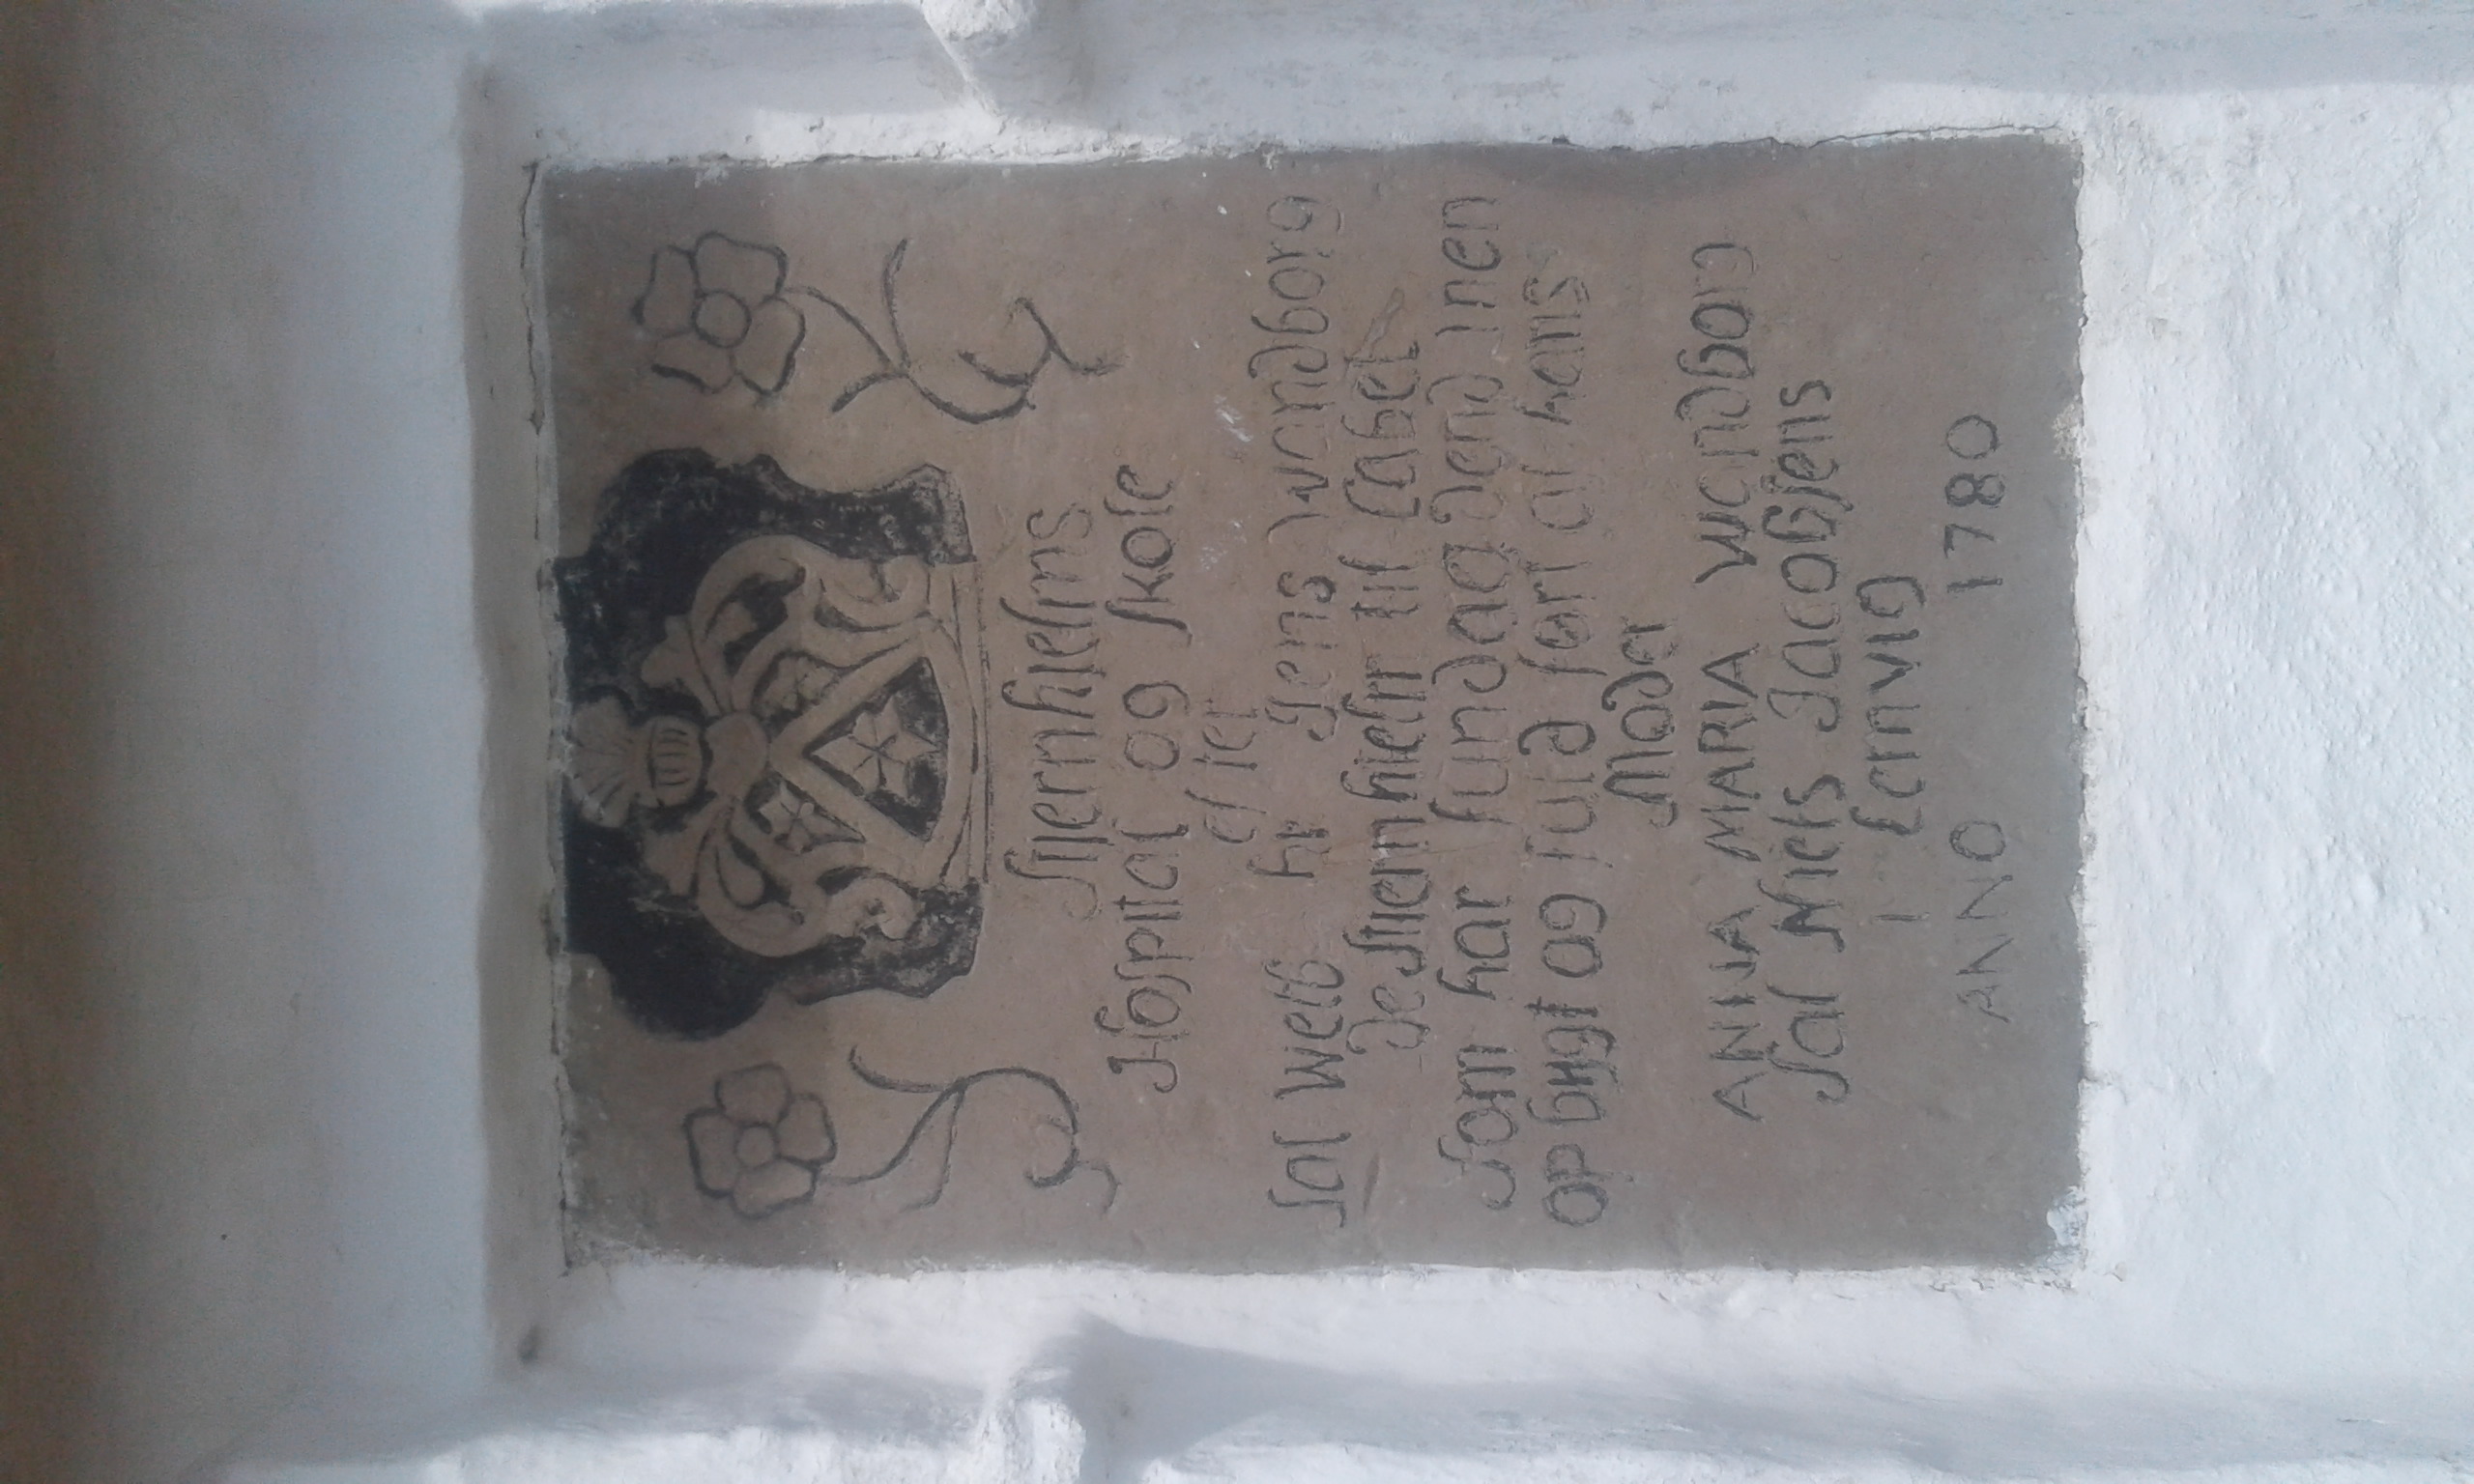 Stiernhielms
Hospital og Skole
efter
Sal Welb hr Jens Wandborg
De Stiernhielm til Cabel
Som har dend men
op bygt og ført af hans
Moder
ANNA MARIA Wandborg
Sal Niels Jacobsens
i Lemvig
ANNO 1780